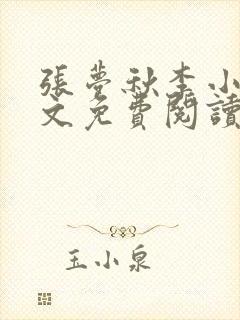 張夢秋李小
文免費閱讀
玉小泉